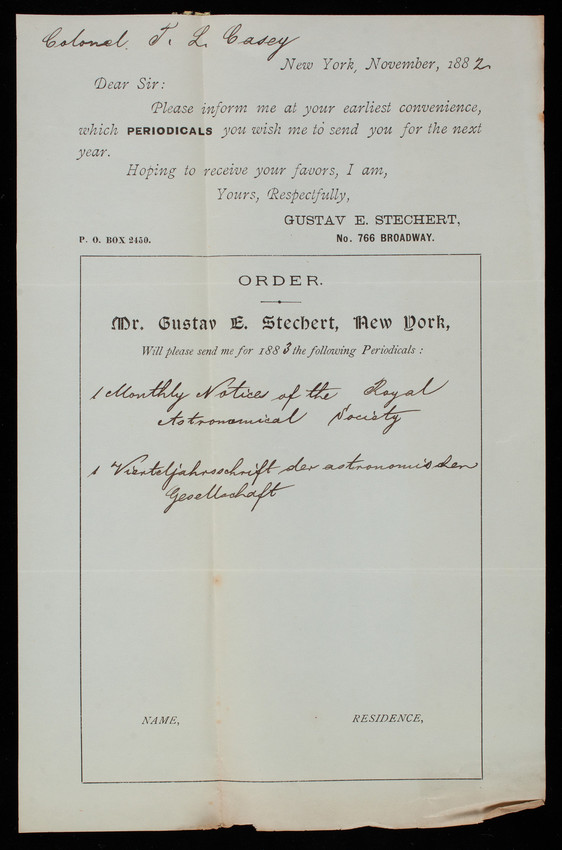 Colonel. T. L. Casey
New York, November, 1882
Dear Sir:
Please inform me at your earliest convenience,
which PERIODICALS you wish me to send you for the next
year.
Hoping to receive your favors, I am,
Yours, Respectfully,
GUSTAV E. STECHERT,
P. O. BOX 2450.
No. 766 BROADWAY.
ORDER.
Mr. Gustav E. Stechert, New York,
Will please send me for 1883 the following Periodicals :
1 Monthly Notices of the Royal
Astronomical Society
1 Vierteljahrsschrift der astronomischen
Gesellschaft
NAME,
RESIDENCE,